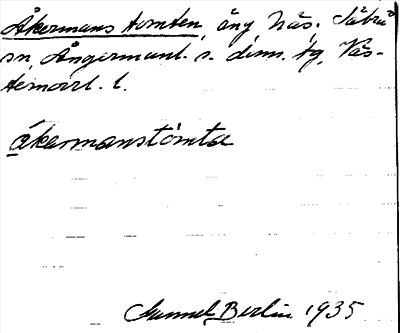 Åkermans tomten, äng Näs. Säbrå
sn, Ångermanl. s. dom. tg, Väs-
ternorrl. l.
åkermanstomta
Gunnel Berlin 1935